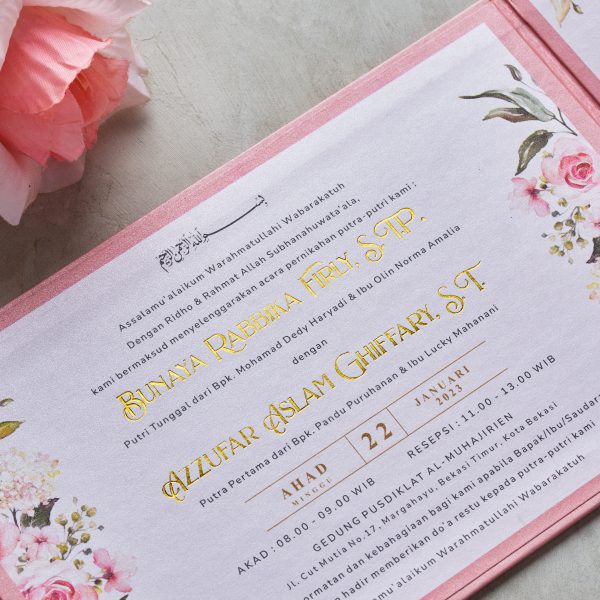 ﷽
Assalamu'alaikum Warahmatullahi Wabarakatuh
Dengan Ridho & Rahmat Allah Subhanahuwata'ala,
kami bermaksud menyelenggarakan acara pernikahan putra-putri kami :
Bunaya Rabbika Firly, S.TP.
Putri Tunggal dari Bpk. Mohamad Dedy Haryadi & Ibu Olin Norma Amalia
dengan
Azzufar Aslam Ghiffary, S.T
Putra Pertama dari Bpk. Pandu Puruhanan & Ibu Lucky Mahanani
AHAD
MINGGU
22
JANUARI
2023
AKAD : 08.00 - 09.00 WIB
RESEPSI : 11.00 - 13.00 WIB
GEDUNG PUSDIKLAT AL-MUHAJIRIEN
Jl. Cut Mutia No.17, Margahayu, Bekasi Timur, Kota Bekasi
ormatan dan kebahagiaan bagi kami apabila Bapak/Ibu/Saudara
n hadir memberikan do'a restu kepada putra-putri kami
amu'alaikum Warahmatullahi Wabarakatuh